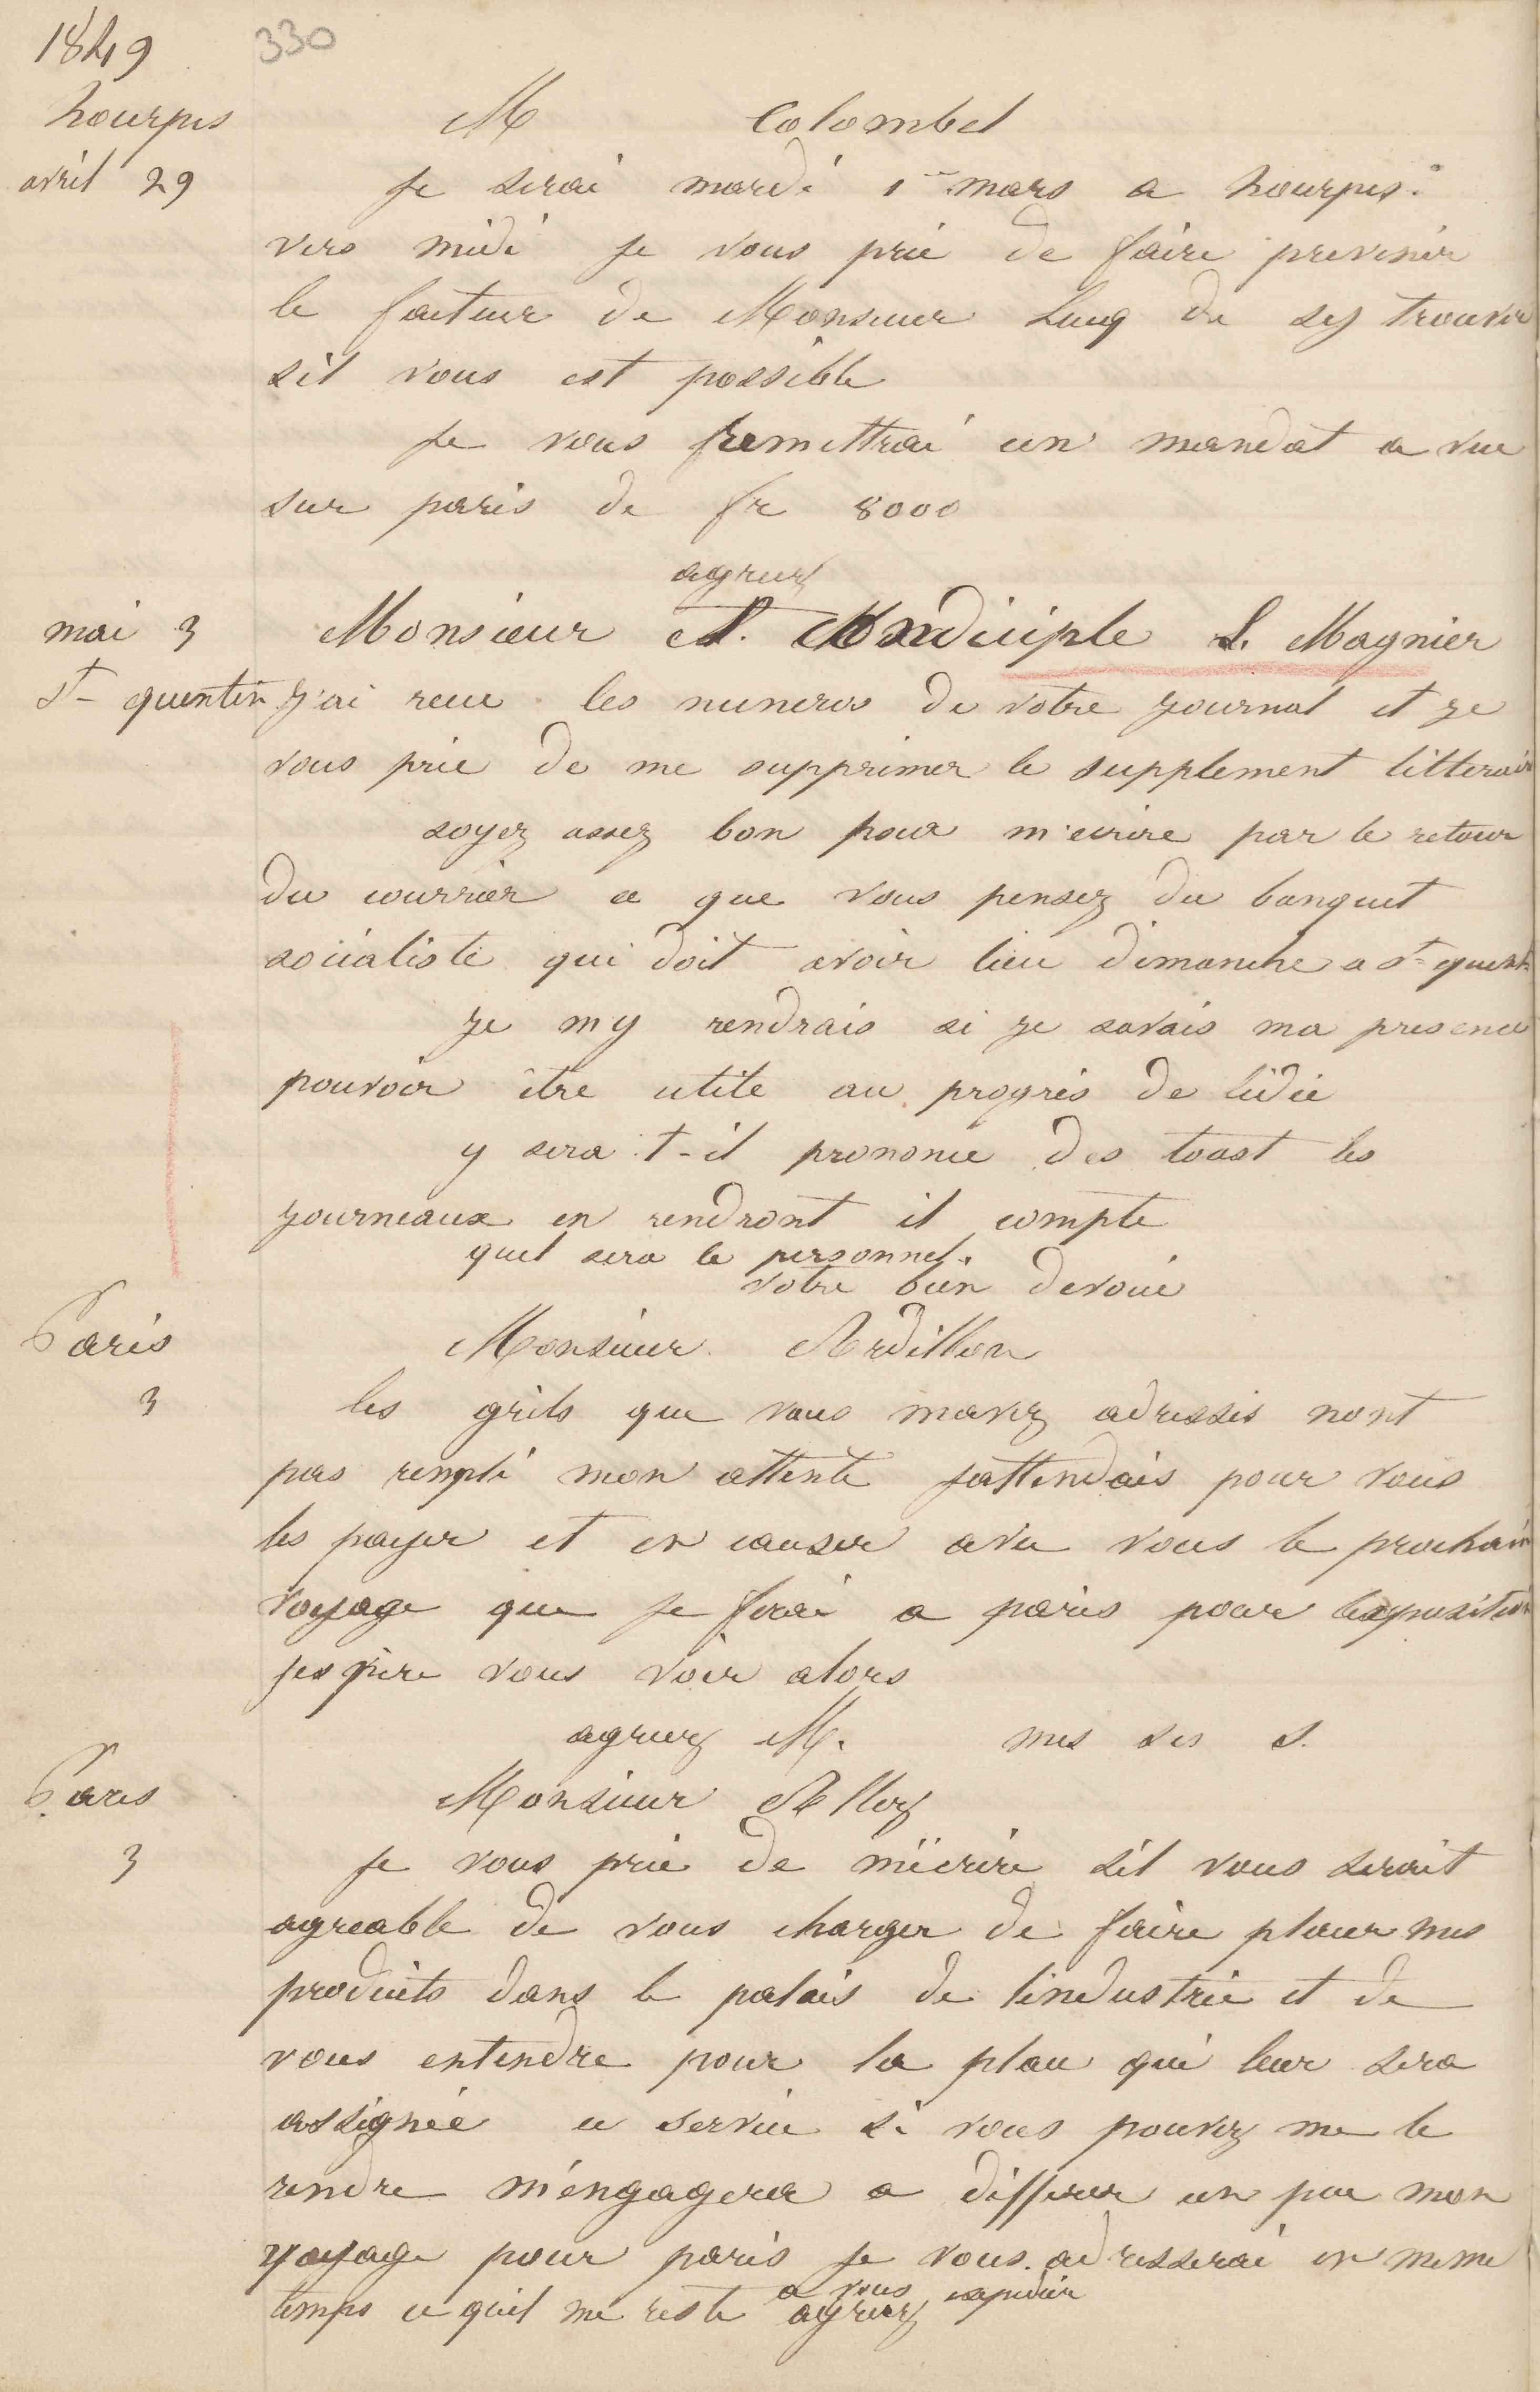 1849
330
hourpes
M Colombel
avril 29
Je serai mardi 1er mars a hourpes
vers midi Je vous prie de faire prevenir
le facteur de Monsieur Lucq de sy trouver
sil vous est possible
Je vous remettrai un mandat a vue
sur paris de fr 8000
agreez
mai 3
Monsieur L. Magnier
St quentin
J'ai recu les numeros de votre journal et je
vous prie de me supprimer le supplement litterair
soyez assez bon pour m'ecrire par le retour
du courrier ce que vous pensez du banquet
socialiste qui doit avoir lieu dimanche a St quent
je my rendrais si je savais ma presence
pouvoir être utile au progrès de lidée
y sera-t-il prononcé des toast les
journeaux en rendront il compte
quel sera le personnel.
votre bien devoué
Paris
Monsieur Ardillon
3
les grils que vous mavez adressés nont
pas rempli mon attente jattendais pour vous
les payer et en causer avec vous le prochain
voyage que je ferai a paris pour lexposition
jespere vous voir alors
agreez M. mes ses s.
Paris
Monsieur Allez
3
Je vous prie de m'écrire sil vous serait
agreable de vous charger de faire placer mes
produits dans le palais de lindustrie et de
vous entendre pour la place qui leur sera
assignée ce service si vous pouvez me le
rendre m'engagera a differer un peu mon
voyage pour paris je vous adresserai en meme
temps ce quil me reste a vous expedier
agreez